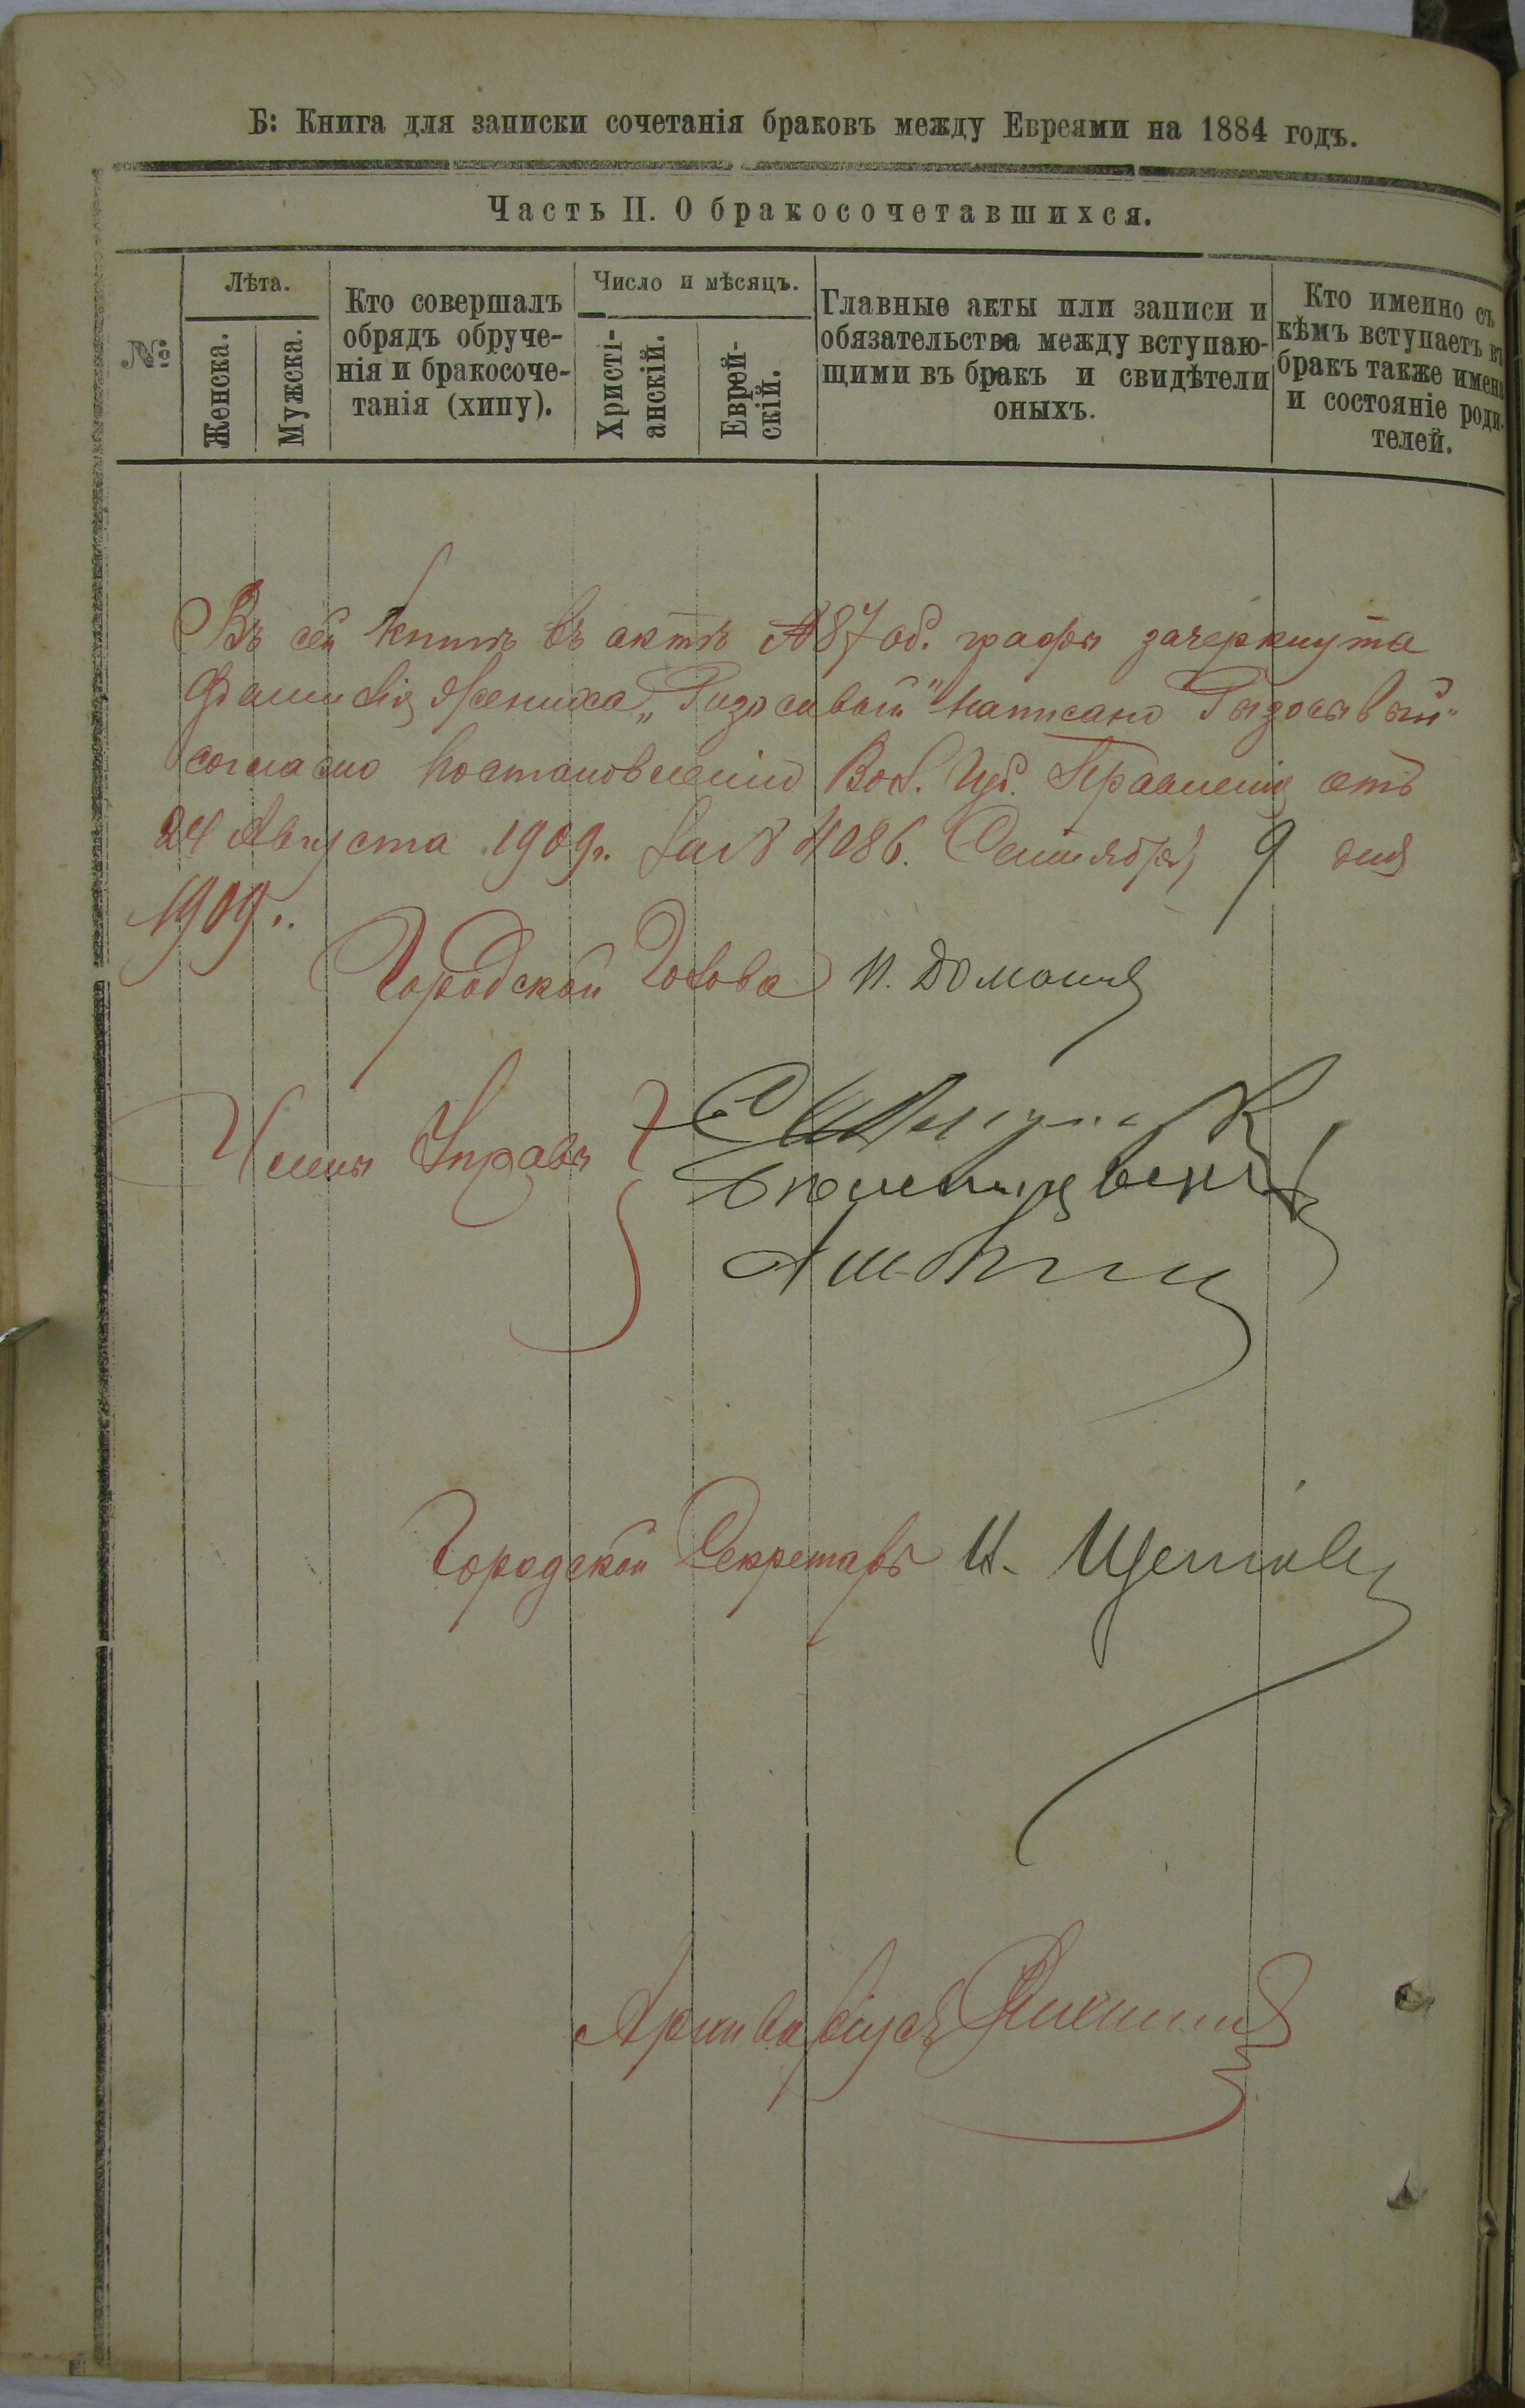 Б: Книга для записки сочетанія браковъ между Евреями на 1884 годъ.
Часть II. О бракосочетавшихся.
№
Лѣта.
Женска.
Мужска.
Кто совершалъ
обрядъ обруче-
нія и бракосоче-
танія (хипу).
Число и мѣсяцъ.
Христі-
анскій.
Еврей-
скій.
Главные акты или записи и
обязательства между вступаю-
щими въ бракъ и свидѣтели
оныхъ.
Кто именно съ
кѣмъ вступаетъ въ
бракъ также имена
и состояніе роди-
телей.
Въ сей книгѣ въ актѣ № 87 об. графы зачеркнута
фамилія жениха „Гизосивой" написано Гызосывый"
согласно постановленію Вол. Губ. Правленія отъ
24 Августа 1909 г. за № 4086. Сентября 9 дня
1909 г.
Городской Голова И. Домания
Члены Управы
Городской Секретарь И.
Архиваріусъ